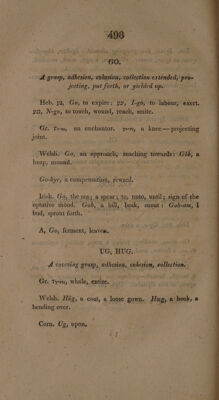 498
GO.
A group, adhesion, cohesion, collection extended, pro-
jecting, put forth, or yielded up.
Heb. Go, to expire; I-go, to labour, exert.
N-go, to touch, wound, reach, smite.
Gr. an enchanter. a knee—projecting
joint.
Welsh. Go, an approach, reaching towards: Gób, a
heap, mound.
Go-byr, a compensation, reward.
Irish. Go, the sea; a spear; to, unto, until; sign of the
optative mood. Gob, a bill, beak, snout: Gob-am, I
bud, sprout forth.
A, Go, ferment, leaven.
UG, HUG.
A covering group, adhesion, cohesion, collection.
Gr. whole, entire.
Welsh. Hûg, a coat, a loose gown. Hug, a hook, a
bending over.
Corn. Ug, upon.